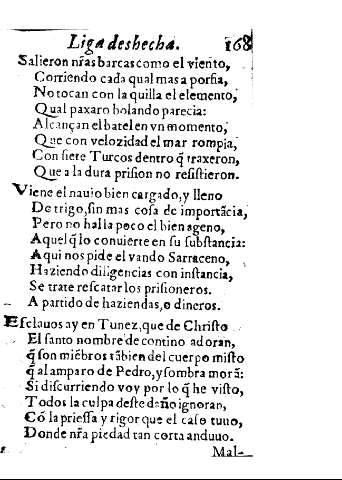 Liga deshecha. 168
Salieron nr̃as barcas como el viento,
Corriendo cada qual mas a porfia,
No tocan con la quilla el elemento,
Qual paxaro bolando parecia:
Alcançan el batel en vn momento,
Que con velozidad el mar rompia,
Con siete Turcos dentro q̃ traxeron,
Que a la dura prision no resistieron.
Viene el nauio bien cargado, y lleno
De trigo, sin mas cosa de importãcia,
Pero no halla poco el bien ageno,
Aquel q̃ lo conuierte en su substancia:
Aqui nos pide el vando Sarraceno,
Haziendo diligencias con instancia,
Se trate rescatar los prisioneros.
A partido de haziendas, o dineros.
Esclauos ay en Tunez, que de Christo
El santo nombre de contino adoran,
q̃ son miẽbros tãbien del cuerpo misto
q̃ al amparo de Pedro, y sombra morã:
Si discurriendo voy por lo q̃ he visto,
Todos la culpa deste daño ignoran,
Cõ la priessa y rigor que el caso tuuo,
Donde nr̃a piedad tan corta anduuo.
Mal-